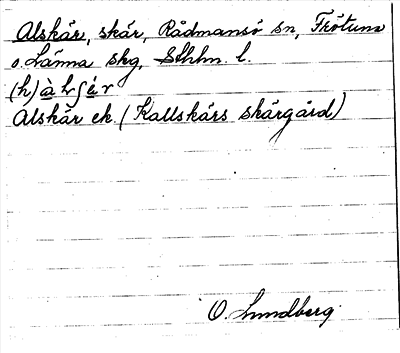 Alskär, skär, Rådmansö sn, Frötuna
o. Länna skg, Sthlm. l.
Alskär ek. (Kallskärs skärgård)
O. Lundberg